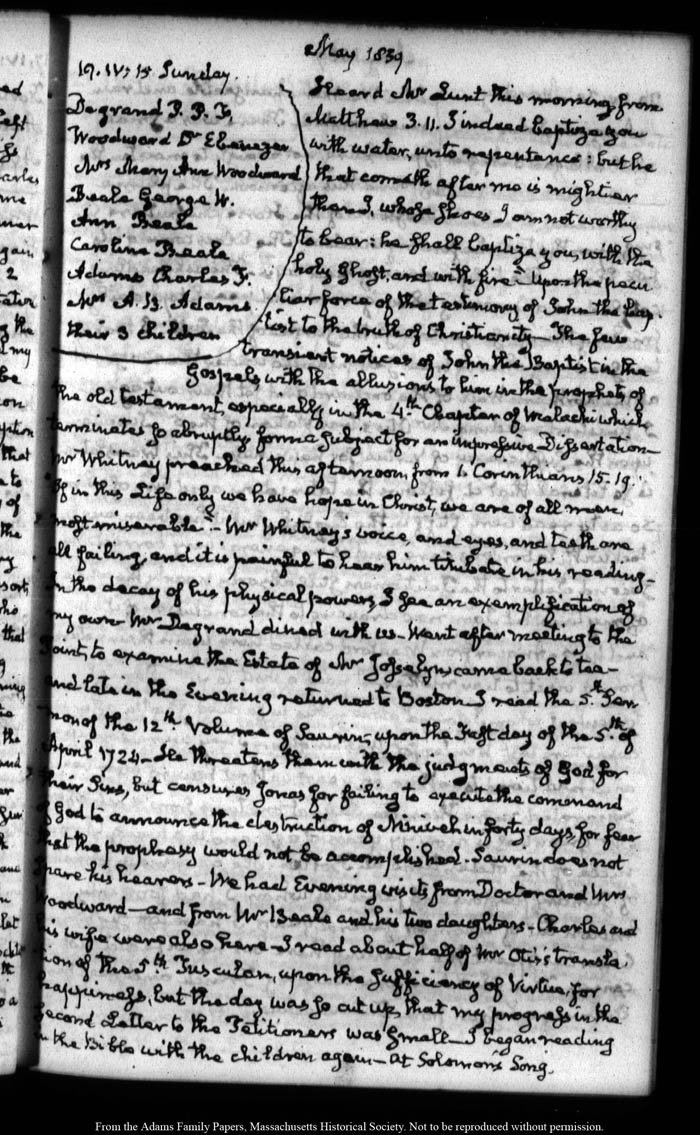 May 1839
19. IV: 15 Sunday.
Degrand P. P. F.
Woodward Dr Ebenezer
Mrs Mary Ann Woodward
Beale George W.
Ann Beale
Caroline Beale
Adams Charles F.
Mrs A. B. Adams
their 3 children
Heard Mr Lunt this morning from
Matthew 3. 11. I indeed baptize you
with water, unto repentance: but he
that cometh after me is mightier
than I, whose shoes I am not worthy
to bear: he shall baptize you, with the
holy Ghost, and with fire" Upon the pecu
liar force of the testimony of John the bap.
tist to the truth of Christianity— The few
transient notices of John the Baptist in the
Gospels with the allusions to him in the prophets of
the old testament, especially in the 4th Chapter of Malachi which
terminates so abruptly form a subject for an impressive Dissertation—
Mr Whitney preached this afternoon, from 1. Corinthians 15. 19.
If in this Life only we have hope in Christ, we are of all men,
most miserable"— Mr Whitney's voice, and eyes, and teeth are
all failing, and it is painful to hear him in his reading—
In the decay of his physical powers, I see an exemplification of
my own— Mr Degrand dined with us— Went after meeting to the
Point, to examine the Estate of Mr Josselyn, came back to tea—
and late in the Evening returned to Boston— I read the 5.th Ser
mon of the 12th Volume of Saurin, upon the Fast day of the 5.th of
April 1724— He threatens them with the judgments of God for
their Sins, but censures Jonas for failing to execute the command
of God to announce the destruction of Niniveh in forty days, for fear
that the prophesy would not be accomplished— Saurin does not
spare his hearers— We had Evening visits from Doctor and Mrs
Woodward— and from Mr Beale and his two daughters— Charles and
his wife were also here— I read about half of Mr Otis's transla
tion of the 5th Tusculan, upon the sufficiency of Virtue, for
happiness, but the day was so cut up, that my progress in the
second Letter to the Petitioners was small— I began reading
in the Bible with the children again— at Solomon's Song.
From the Adams Family Papers, Massachusetts Historical Society. Not to be reproduced without permission.